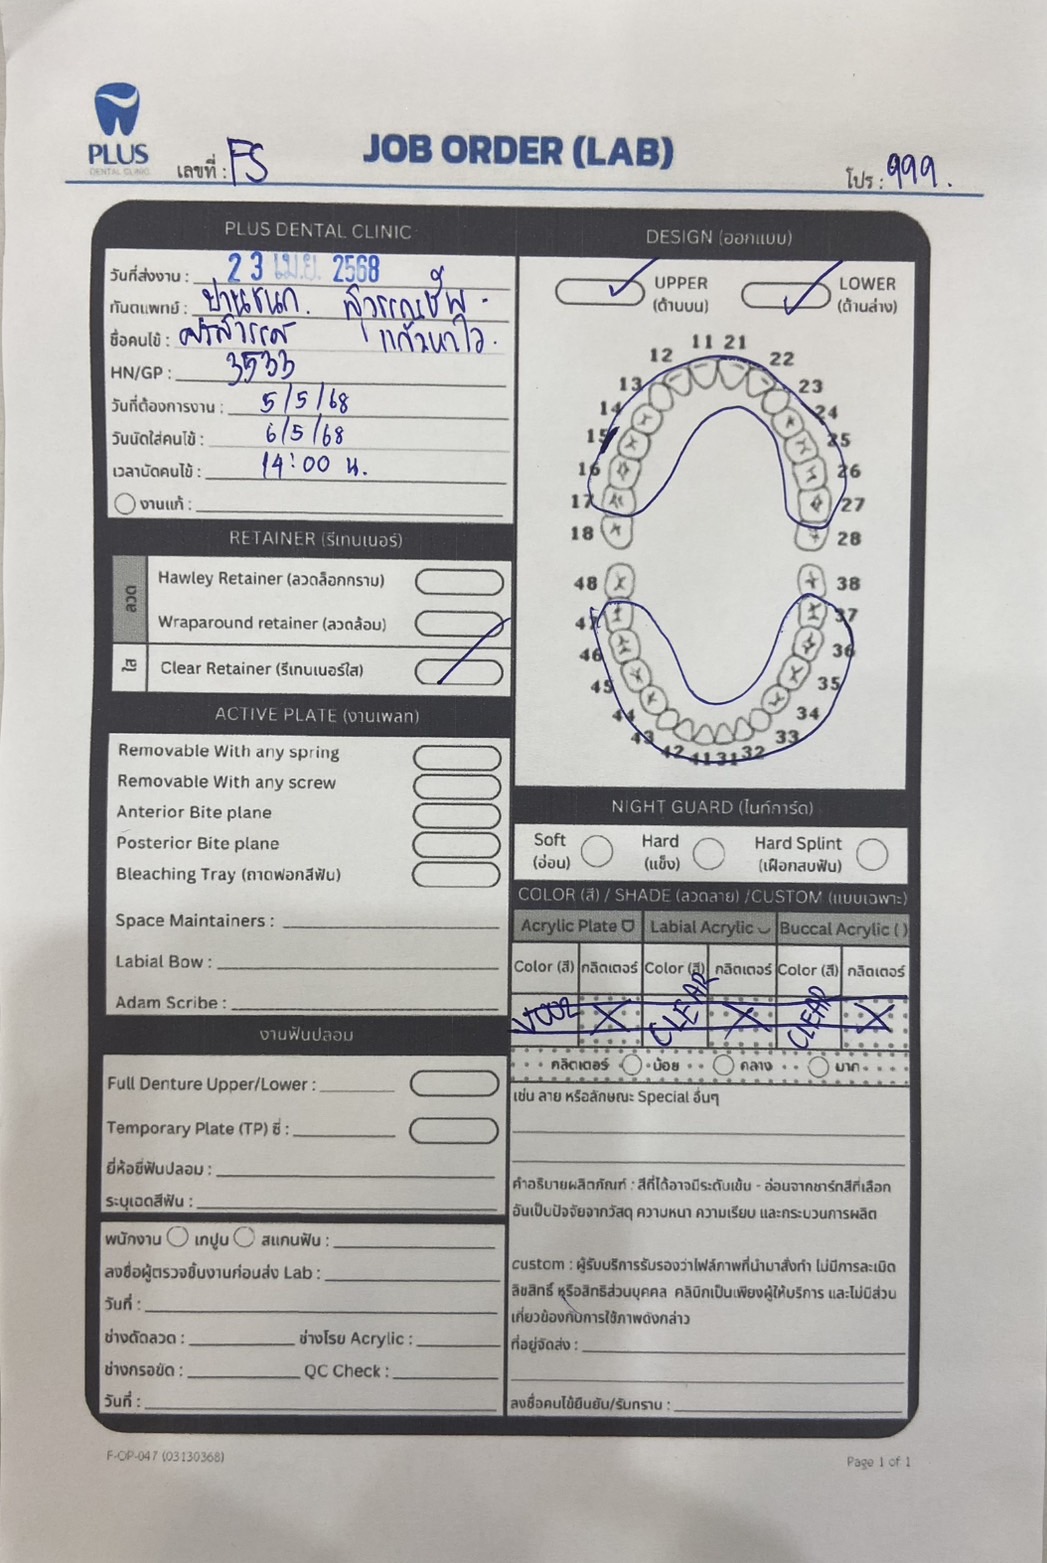 PLUS
DENTAL CLINIC
เลขที่ : FS
JOB ORDER (LAB)
โปร : 999.
PLUS DENTAL CLINIC
วันที่ส่งงาน : 23 เม.ย. 2568
ทันตแพทย์ : ปานชนก. สุวรรณชีพ.
ชื่อคนไข้ : แก้วหาไว.
HN/GP : 3533
วันที่ต้องการงาน : 5/5/68
วันนัดใส่คนไข้ : 6/5/68
เวลานัดคนไข้ : 14:00 น.
งานแก้ :
RETAINER (รีเทนเนอร์)
ลวด
Hawley Retainer (ลวดล็อกกราม)
Wraparound retainer (ลวดล้อม)
ใส
Clear Retainer (รีเทนเนอร์ใส)
ACTIVE PLATE (งานเพลท)
Removable With any spring
Removable With any screw
Anterior Bite plane
Posterior Bite plane
Bleaching Tray (ถาดฟอกสีฟัน)
Space Maintainers :
Labial Bow :
Adam Scribe :
งานฟันปลอม
Full Denture Upper/Lower :
Temporary Plate (TP) ซี่ :
ยี่ห้อซี่ฟันปลอม :
ระบุเฉดสีฟัน :
พนักงาน เทปูน สแกนฟัน :
ลงชื่อผู้ตรวจชิ้นงานก่อนส่ง Lab :
วันที่ :
ช่างดัดลวด : ช่างโรย Acrylic :
ช่างกรอขัด : QC Check :
วันที่ :
DESIGN (ออกแบบ)
UPPER
(ด้านบน)
LOWER
(ด้านล่าง)
11 21
12 22
13 23
14 24
15 25
16 26
17 27
18 28
48 38
47 37
46 36
45 35
44 34
43 33
42 41 31 32
NIGHT GUARD (ไนท์การ์ด)
Soft
(อ่อน)
Hard
(แข็ง)
Hard Splint
(เฝือกสบฟัน)
COLOR (สี) / SHADE (ลวดลาย) /CUSTOM (แบบเฉพาะ)
Acrylic Plate Labial Acrylic Buccal Acrylic ( )
Color (สี) กลิตเตอร์ Color (สี) กลิตเตอร์ Color (สี) กลิตเตอร์
V002 X CLEAR X CLEAR X
กลิตเตอร์ น้อย กลาง มาก
เช่น ลาย หรือลักษณะ Special อื่นๆ
คำอธิบายผลิตภัณฑ์ : สีที่ได้อาจมีระดับเข้ม - อ่อนจากชาร์ทสีที่เลือก
อันเป็นปัจจัยจากวัสดุ ความหนา ความเรียบ และกระบวนการผลิต
custom : ผู้รับบริการรับรองว่าไฟล์ภาพที่นำมาสั่งทำ ไม่มีการละเมิด
ลิขสิทธิ์ หรือสิทธิส่วนบุคคล คลินิกเป็นเพียงผู้ให้บริการ และไม่มีส่วน
เกี่ยวข้องกับการใช้ภาพดังกล่าว
ที่อยู่จัดส่ง :
ลงชื่อคนไข้ยืนยัน/รับทราบ :
F-OP-047 (03130368)
Page 1 of 1